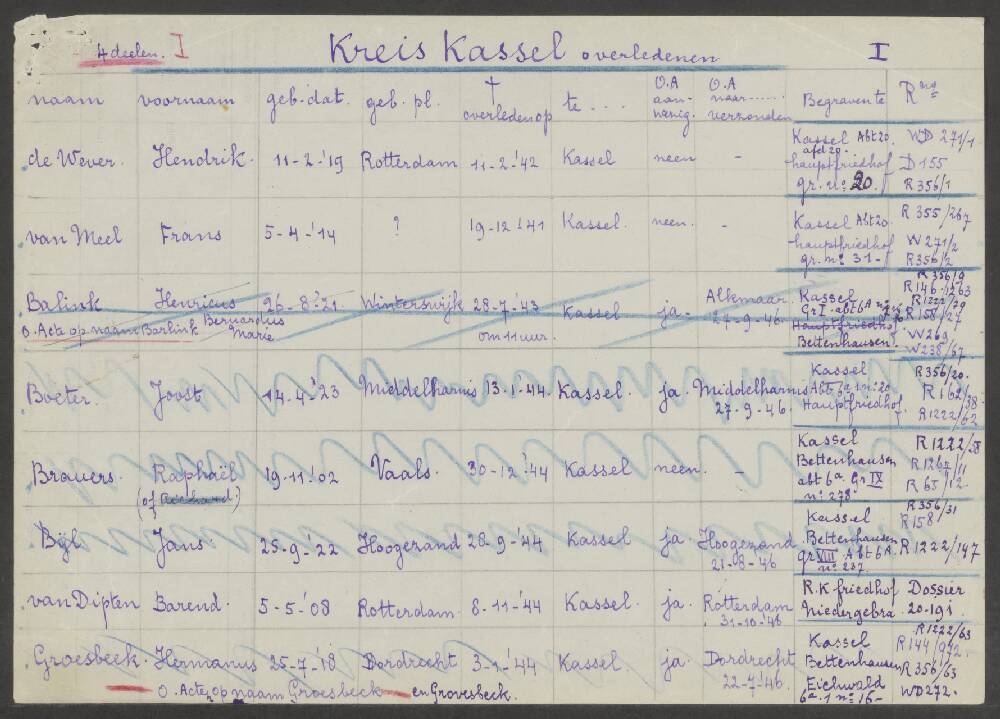 4 deelen. I Kreis Kassel overledenen I
naam voornaam geb. dat. geb. pl. † overleden op te ... O.A aan-wezig. O.A naar ...... verzonden Begraven te Rng
de Wever. Hendrik. 11-2-'19 Rotterdam 11-2-'42 Kassel neen - Kassel Abt 20. WD 271/1
afd 20.
hauptfriedhof D 155
gr. no 20. R 356/1
van Meel Frans 5-4-'14 ? 19-12-'41 Kassel. neen. - Kassel Abt 20. R 355/267
hauptfriedhof W 271/2
gr. no 31- R 356/2
R 356/9
Balink Henricus 26-8-'21 Winterswijk 28-7-'43 Kassel ja. Alkmaar. Kassel R 146-1263
Bernardus Marie om 11 uur. 27-9-46. Gr I - abt 6A R 1222/29
O. Acte op naam Barlink Hauptfriedhof R 158/27
Bettenhausen. W 269
W 238/67
Boeter. Joost 14-4-'23 Middelharnis 13-1-'44. Kassel. ja. Middelharnis Kassel R 356/20.
27-9-46. Abt 6a no 20 R 162/38
Hauptfriedhof. R 1222/62
Brouwers. Raphaël 19-11-'02 Vaals. 30-12-'44 Kassel neen. - Kassel R 1222/58
(of Richard) Bettenhausen R 1267/11
abt 6a Gr IX R 65/12.
no 278. R 356/31
Bijl Jans. 25-9-'22 Hoogezand 28-9-'44 Kassel ja. Hoogezand Kassel R 158
21-8-46 Bettenhausen
gr VIII Abt 6A. R 1222/147
no 237.
van Dipten Barend. 5-5-'08 Rotterdam. 8-11-'44 Kassel. ja. Rotterdam R.K friedhof Dossier
31-10-'46 Niedergebra 20-19 i.
R 1222/63
Groesbeek. Hermanus 25-7-'18 Dordrecht 3-1-'44 Kassel ja. Dordrecht Kassel R 144/972.
22-7-'46. Bettenhausen R 356/63
O. Acte op naam Groesbeek en Grovesbeek. Eichwald WD 272.
6a. 1 no 16-